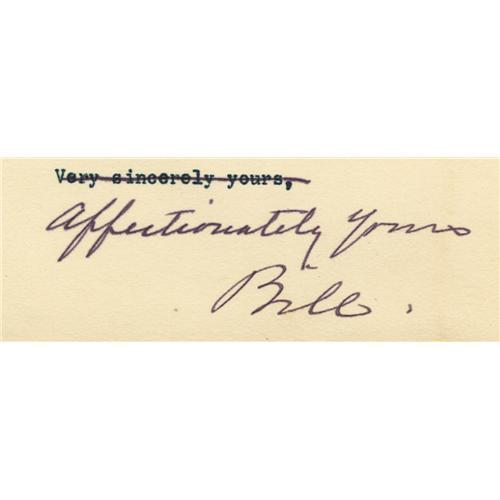 Very sincerely yours,
Affectionately yours
Bill.